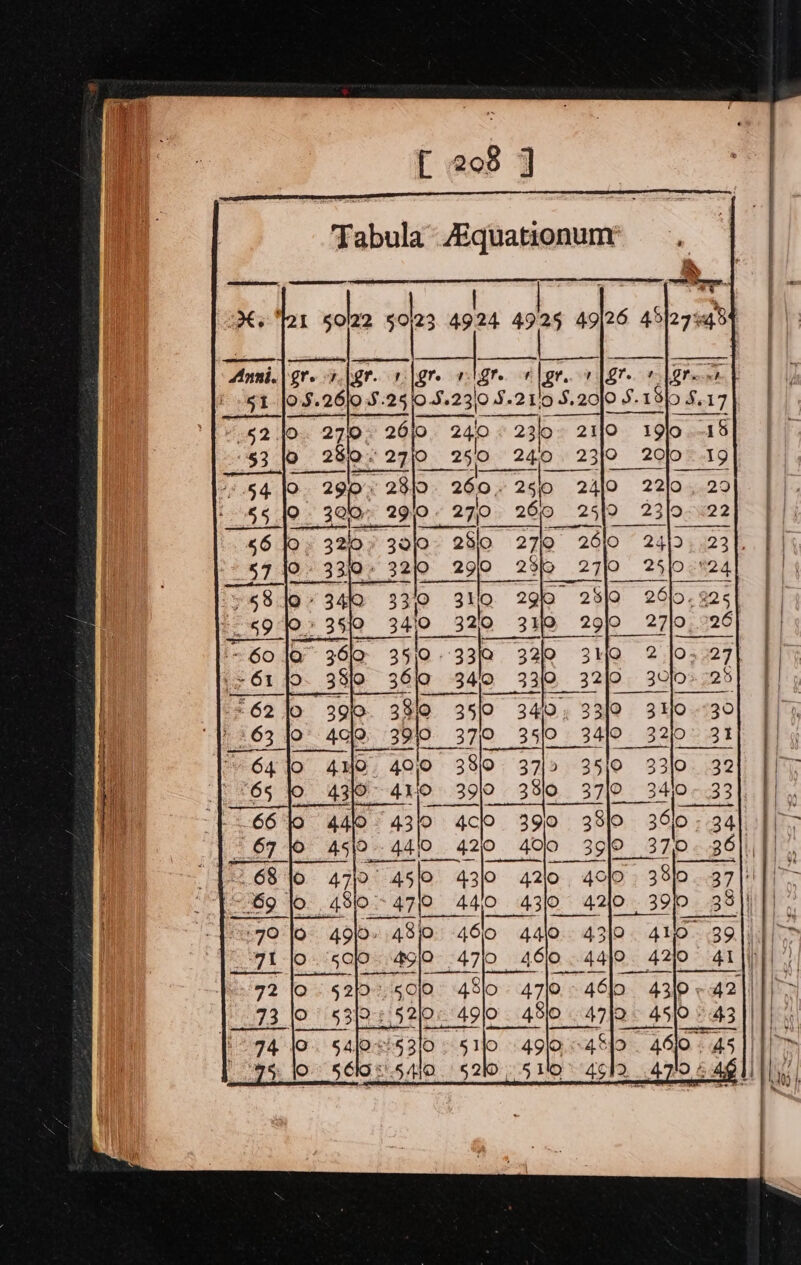 [ 208 ]
Tabula Æquationum
♓. 21 50|22 50|23 49|24 49|25 49|26 48|27 48
Anni. gr. ı.|gr. ı|gr. ı|gr. ı|gr. ı|gr. ı|gr. ı
51 |0 S.26|0 S.25|0 S.23|0 S.21|0 S.20|0 S.18|0 S.17
52 |0 27|0 26|0 24|0 23|0 21|0 19|0 18
53 |0 28|0 27|0 25|0 24|0 23|0 20|0 19
54 |0 29|0 28|0 26|0 25|0 24|0 22|0 20
55 |0 30|0 29|0 27|0 26|0 25|0 23|0 22
56 |0 32|0 30|0 28|0 27|0 26|0 24|0 23
57 |0 33|0 32|0 29|0 28|0 27|0 25|0 24
58 |0 34|0 33|0 31|0 29|0 28|0 26|0 25
59 |0 35|0 34|0 32|0 31|0 29|0 27|0 26
60 |0 36|0 35|0 33|0 32|0 31|0 2 |0 27
61 |0 38|0 36|0 34|0 33|0 32|0 30|0 28
62 |0 39|0 38|0 35|0 34|0 33|0 31|0 30
63 |0 40|0 39|0 37|0 35|0 34|0 32|0 31
64 |0 41|0 40|0 38|0 37|0 35|0 33|0 32
65 |0 43|0 41|0 39|0 38|0 37|0 34|0 33
66 |0 44|0 43|0 40|0 39|0 38|0 36|0 34
67 |0 45|0 44|0 42|0 40|0 39|0 37|0 36
68 |0 47|0 45|0 43|0 42|0 40|0 38|0 37
69 |0 48|0 47|0 44|0 43|0 42|0 39|0 38
70 |0 49|0 48|0 46|0 44|0 43|0 41|0 39
71 |0 50|0 49|0 47|0 46|0 44|0 42|0 41
72 |0 52|0 50|0 48|0 47|0 46|0 43|0 42
73 |0 53|0 52|0 49|0 48|0 47|0 45|0 43
74 |0 54|0 53|0 51|0 49|0 48|0 46|0 45
75 |0 56|0 54|0 52|0 51|0 49|0 47|0 46